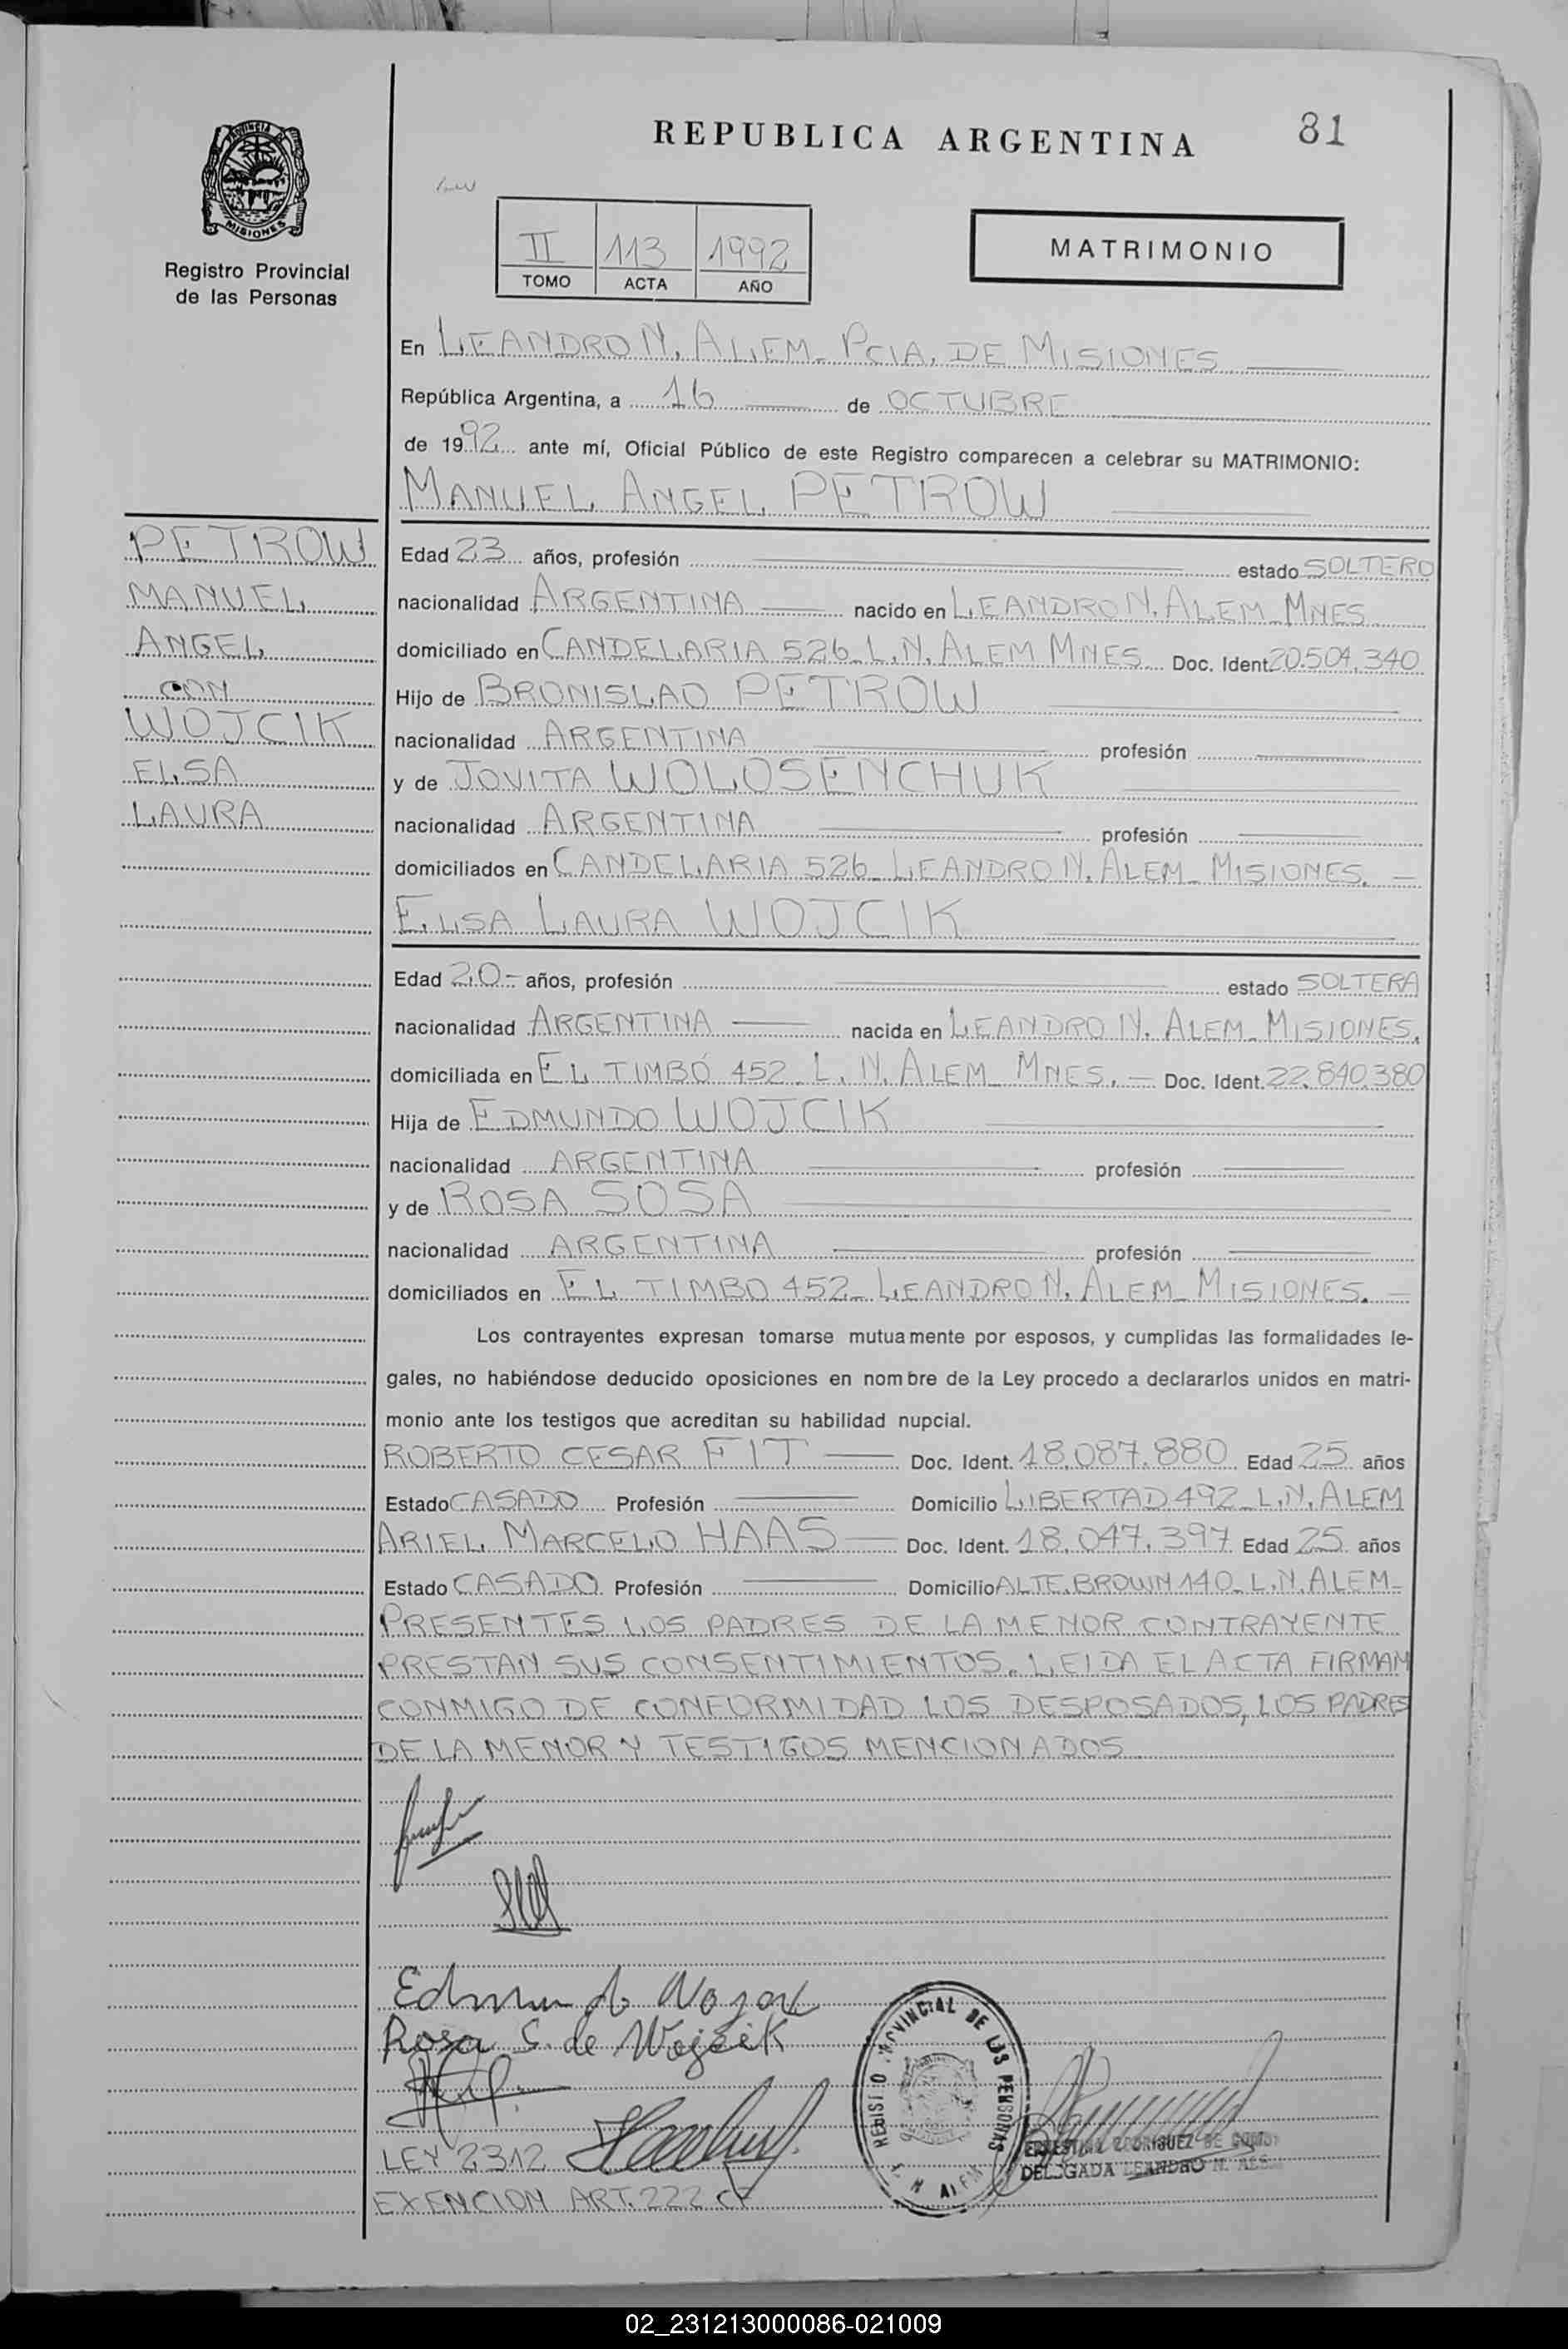 REPUBLICA ARGENTINA
81
PROVINCIA DE
MISIONES
Registro Provincial
de las Personas
II 113 1992
TOMO ACTA AÑO
MATRIMONIO
En LEANDRO N. ALEM_ PCIA. DE MISIONES
República Argentina, a 16 de OCTUBRE
de 1992 ante mí, Oficial Público de este Registro comparecen a celebrar su MATRIMONIO:
MANUEL ANGEL PETROW
PETROW
MANUEL
ANGEL
CON
WOJCIK
ELSA
LAURA
Edad 23 años, profesión estado SOLTERO
nacionalidad ARGENTINA nacido en LEANDRO N. ALEM_ MNES
domiciliado en CANDELARIA 526_ L.N. ALEM MNES Doc. Ident. 20.504.340
Hijo de BRONISLAO PETROW
nacionalidad ARGENTINA profesión
y de JOVITA WOLOSENCHUK
nacionalidad ARGENTINA profesión
domiciliados en CANDELARIA 526_ LEANDRO N. ALEM_ MISIONES. —
ELSA LAURA WOJCIK
Edad 20- años, profesión estado SOLTERA
nacionalidad ARGENTINA nacida en LEANDRO N. ALEM_ MISIONES.
domiciliada en EL TIMBÓ 452_ L. N. ALEM_ MNES. — Doc. Ident. 22.840.380
Hija de EDMUNDO WOJCIK
nacionalidad ARGENTINA profesión
y de ROSA SOSA
nacionalidad ARGENTINA profesión
domiciliados en EL TIMBO 452_ LEANDRO N. ALEM_ MISIONES. —
Los contrayentes expresan tomarse mutuamente por esposos, y cumplidas las formalidades le-
gales, no habiéndose deducido oposiciones en nombre de la Ley procedo a declararlos unidos en matri-
monio ante los testigos que acreditan su habilidad nupcial.
ROBERTO CESAR FIT — Doc. Ident. 18.087.880 Edad 25 años
Estado CASADO Profesión Domicilio LIBERTAD 492_ L.N. ALEM
ARIEL MARCELO HAAS — Doc. Ident. 18.047.397 Edad 25 años
Estado CASADO Profesión Domicilio ALTE. BROWN 140_ L.N. ALEM_
PRESENTES LOS PADRES DE LA MENOR CONTRAYENTE
PRESTAN SUS CONSENTIMIENTOS. LEIDA EL ACTA FIRMAN
CONMIGO DE CONFORMIDAD LOS DESPOSADOS, LOS PADRES
DE LA MENOR Y TESTIGOS MENCIONADOS
Edmundo
Rosa S. de Wojcik
REGISTRO PROVINCIAL DE LAS PERSONAS
L. N. ALEM
RODRIGUEZ DE
DELEGADA LEANDRO N. ALEM
LEY 2312
EXENCION ART. 222 CF
02_231213000086-021009